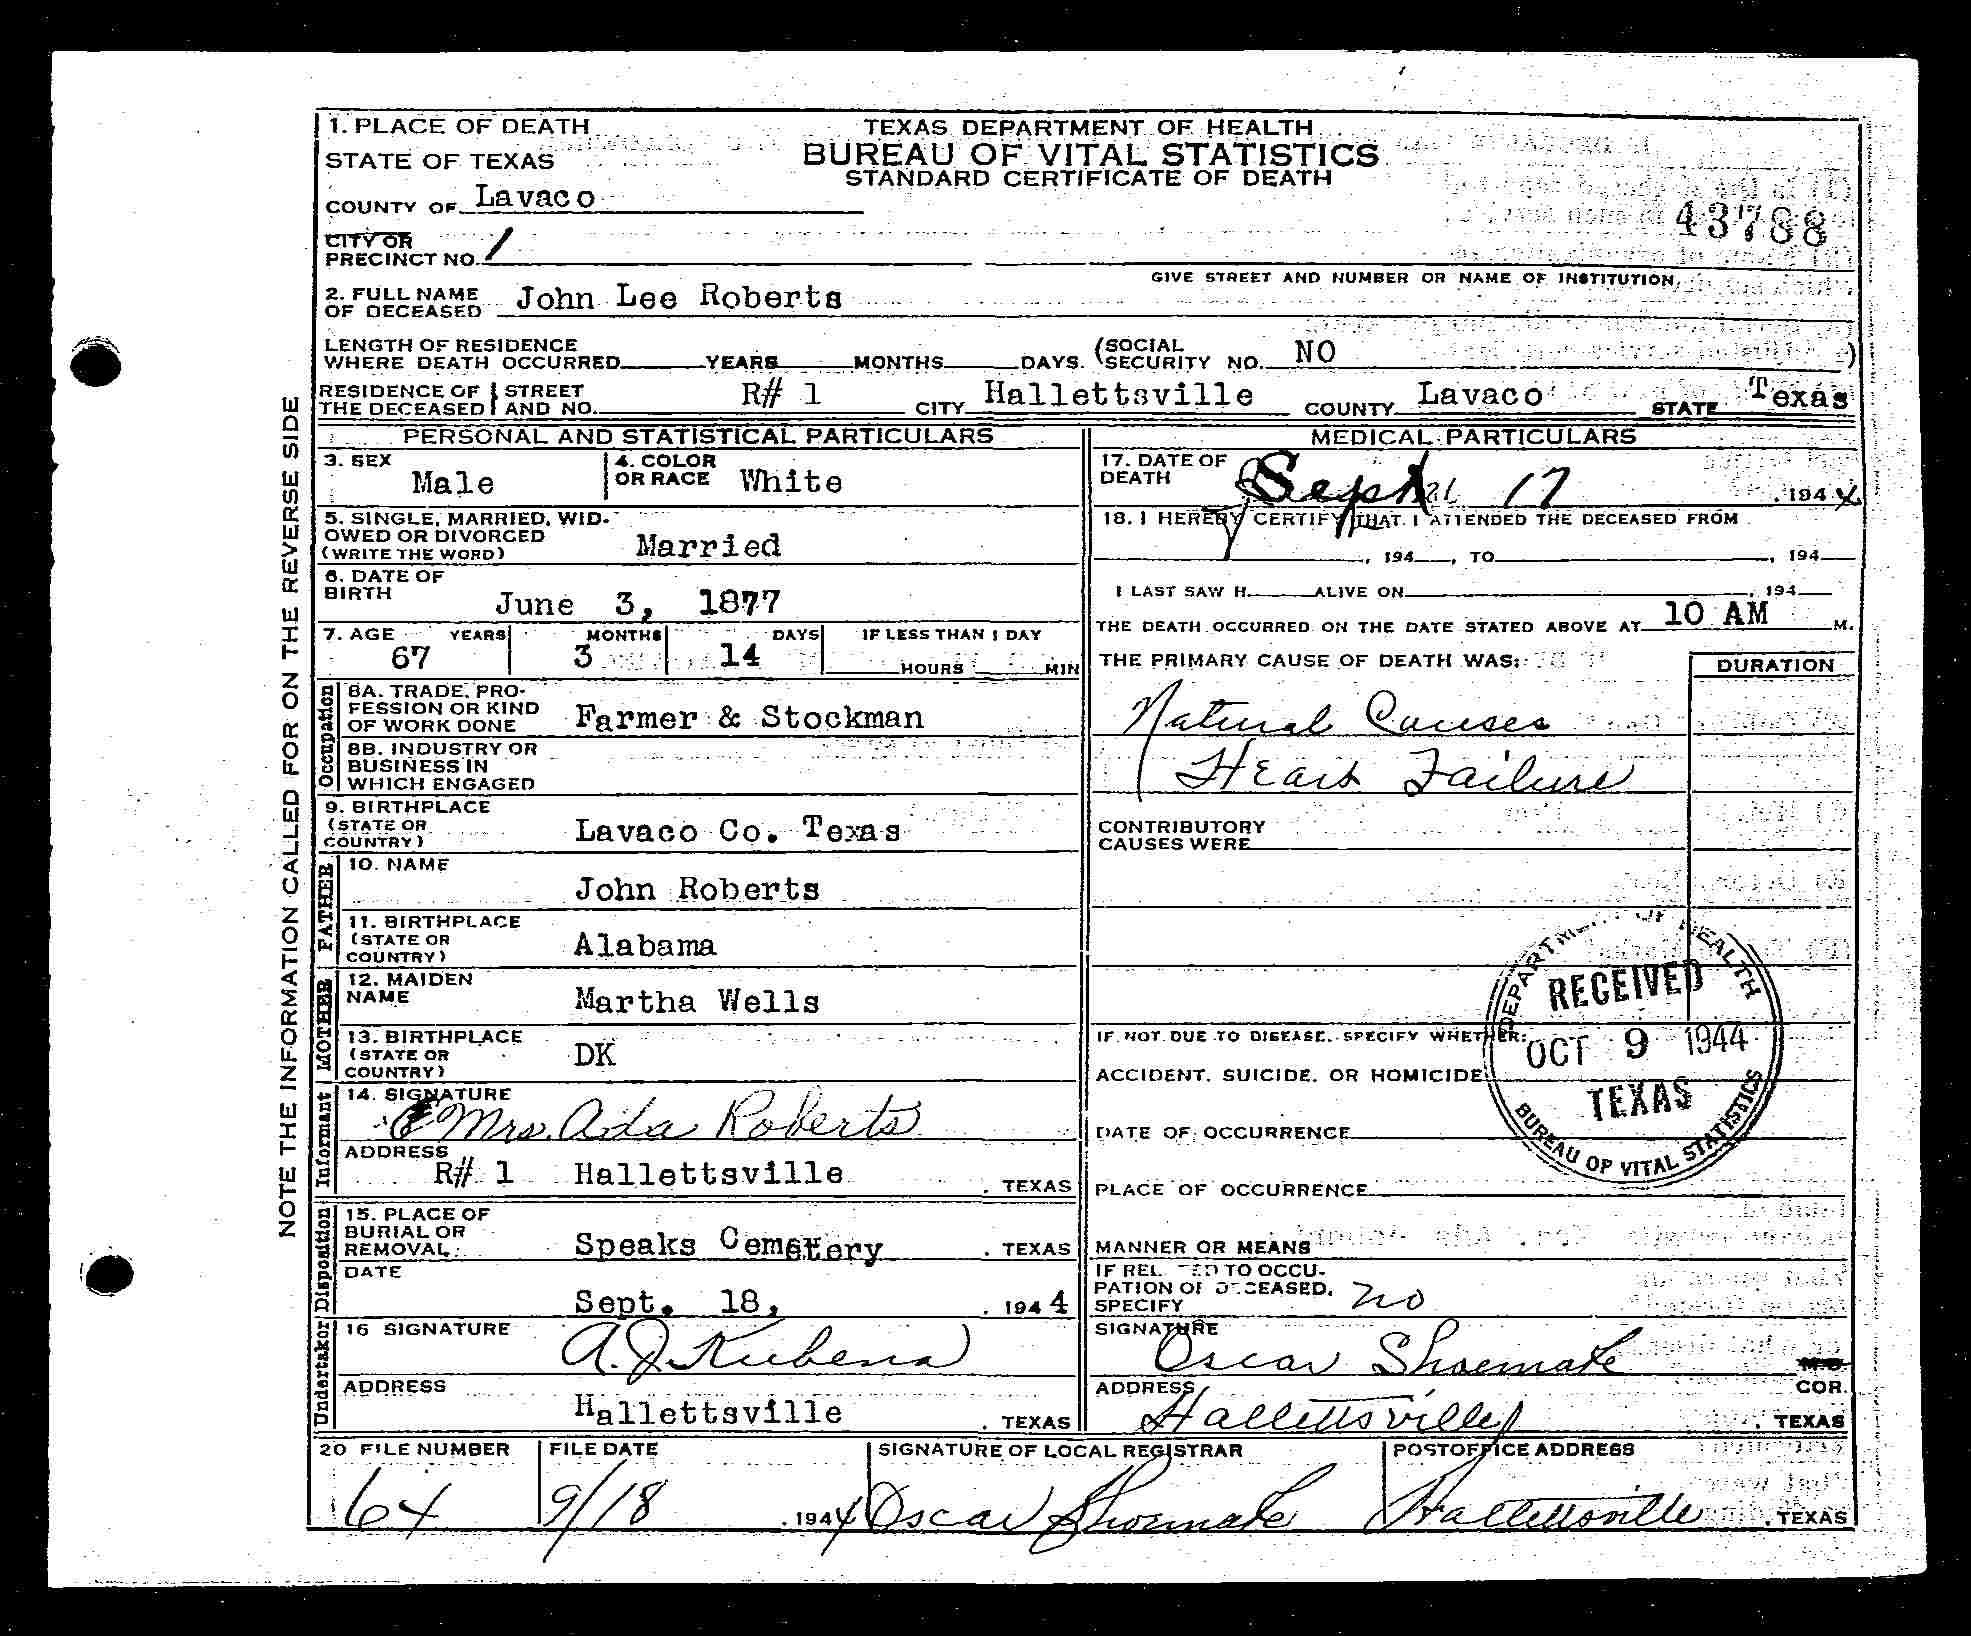 1. PLACE OF DEATH
TEXAS DEPARTMENT OF HEALTH
STATE OF TEXAS
BUREAU OF VITAL STATISTICS
STANDARD CERTIFICATE OF DEATH
COUNTY OF Lavaco
43788
CITY OR
PRECINCT NO. 1
GIVE STREET AND NUMBER OR NAME OF INSTITUTION
2. FULL NAME
OF DECEASED John Lee Roberts
LENGTH OF RESIDENCE
WHERE DEATH OCCURRED YEARS MONTHS DAYS. (SOCIAL SECURITY NO. NO )
RESIDENCE OF THE DECEASED STREET AND NO. R# 1 CITY Hallettsville COUNTY Lavaco STATE Texas
PERSONAL AND STATISTICAL PARTICULARS
3. SEX Male
4. COLOR OR RACE White
5. SINGLE, MARRIED, WID-
OWED OR DIVORCED
(WRITE THE WORD) Married
6. DATE OF
BIRTH June 3, 1877
7. AGE YEARS MONTHS DAYS IF LESS THAN 1 DAY
67 3 14 HOURS MIN
Occupation
8A. TRADE, PRO-
FESSION OR KIND
OF WORK DONE Farmer & Stockman
8B. INDUSTRY OR
BUSINESS IN
WHICH ENGAGED
9. BIRTHPLACE
(STATE OR
COUNTRY) Lavaco Co. Texas
FATHER
10. NAME
John Roberts
11. BIRTHPLACE
(STATE OR
COUNTRY) Alabama
MOTHER
12. MAIDEN
NAME Martha Wells
13. BIRTHPLACE
(STATE OR
COUNTRY) DK
Informant
14. SIGNATURE
Mrs. Ada Roberts
ADDRESS
R# 1 Hallettsville . TEXAS
Disposition
15. PLACE OF
BURIAL OR
REMOVAL Speaks Cemetery . TEXAS
DATE
Sept. 18, . 1944
Undertaker
16 SIGNATURE
A. J. Kubena
ADDRESS
Hallettsville . TEXAS
MEDICAL PARTICULARS
17. DATE OF
DEATH Sept 17 . 1944
18. I HEREBY CERTIFY THAT I ATTENDED THE DECEASED FROM
, 194 , TO , 194
I LAST SAW H ALIVE ON , 194
THE DEATH OCCURRED ON THE DATE STATED ABOVE AT 10 AM M.
THE PRIMARY CAUSE OF DEATH WAS: DURATION
Natural Causes
Heart Failure
CONTRIBUTORY
CAUSES WERE
DEPARTMENT OF HEALTH
RECEIVED
OCT 9 1944
TEXAS
BUREAU OF VITAL STATISTICS
IF NOT DUE TO DISEASE, SPECIFY WHETHER:
ACCIDENT, SUICIDE, OR HOMICIDE
DATE OF OCCURRENCE
PLACE OF OCCURRENCE
MANNER OR MEANS
IF RELATED TO OCCU-
PATION OF DECEASED,
SPECIFY no
SIGNATURE
Oscar Shoemake M.D.
COR.
ADDRESS
Hallettsville . TEXAS
20 FILE NUMBER FILE DATE SIGNATURE OF LOCAL REGISTRAR POSTOFFICE ADDRESS
64 9/18 . 1944 Oscar Shoemake Hallettsville . TEXAS
NOTE THE INFORMATION CALLED FOR ON THE REVERSE SIDE